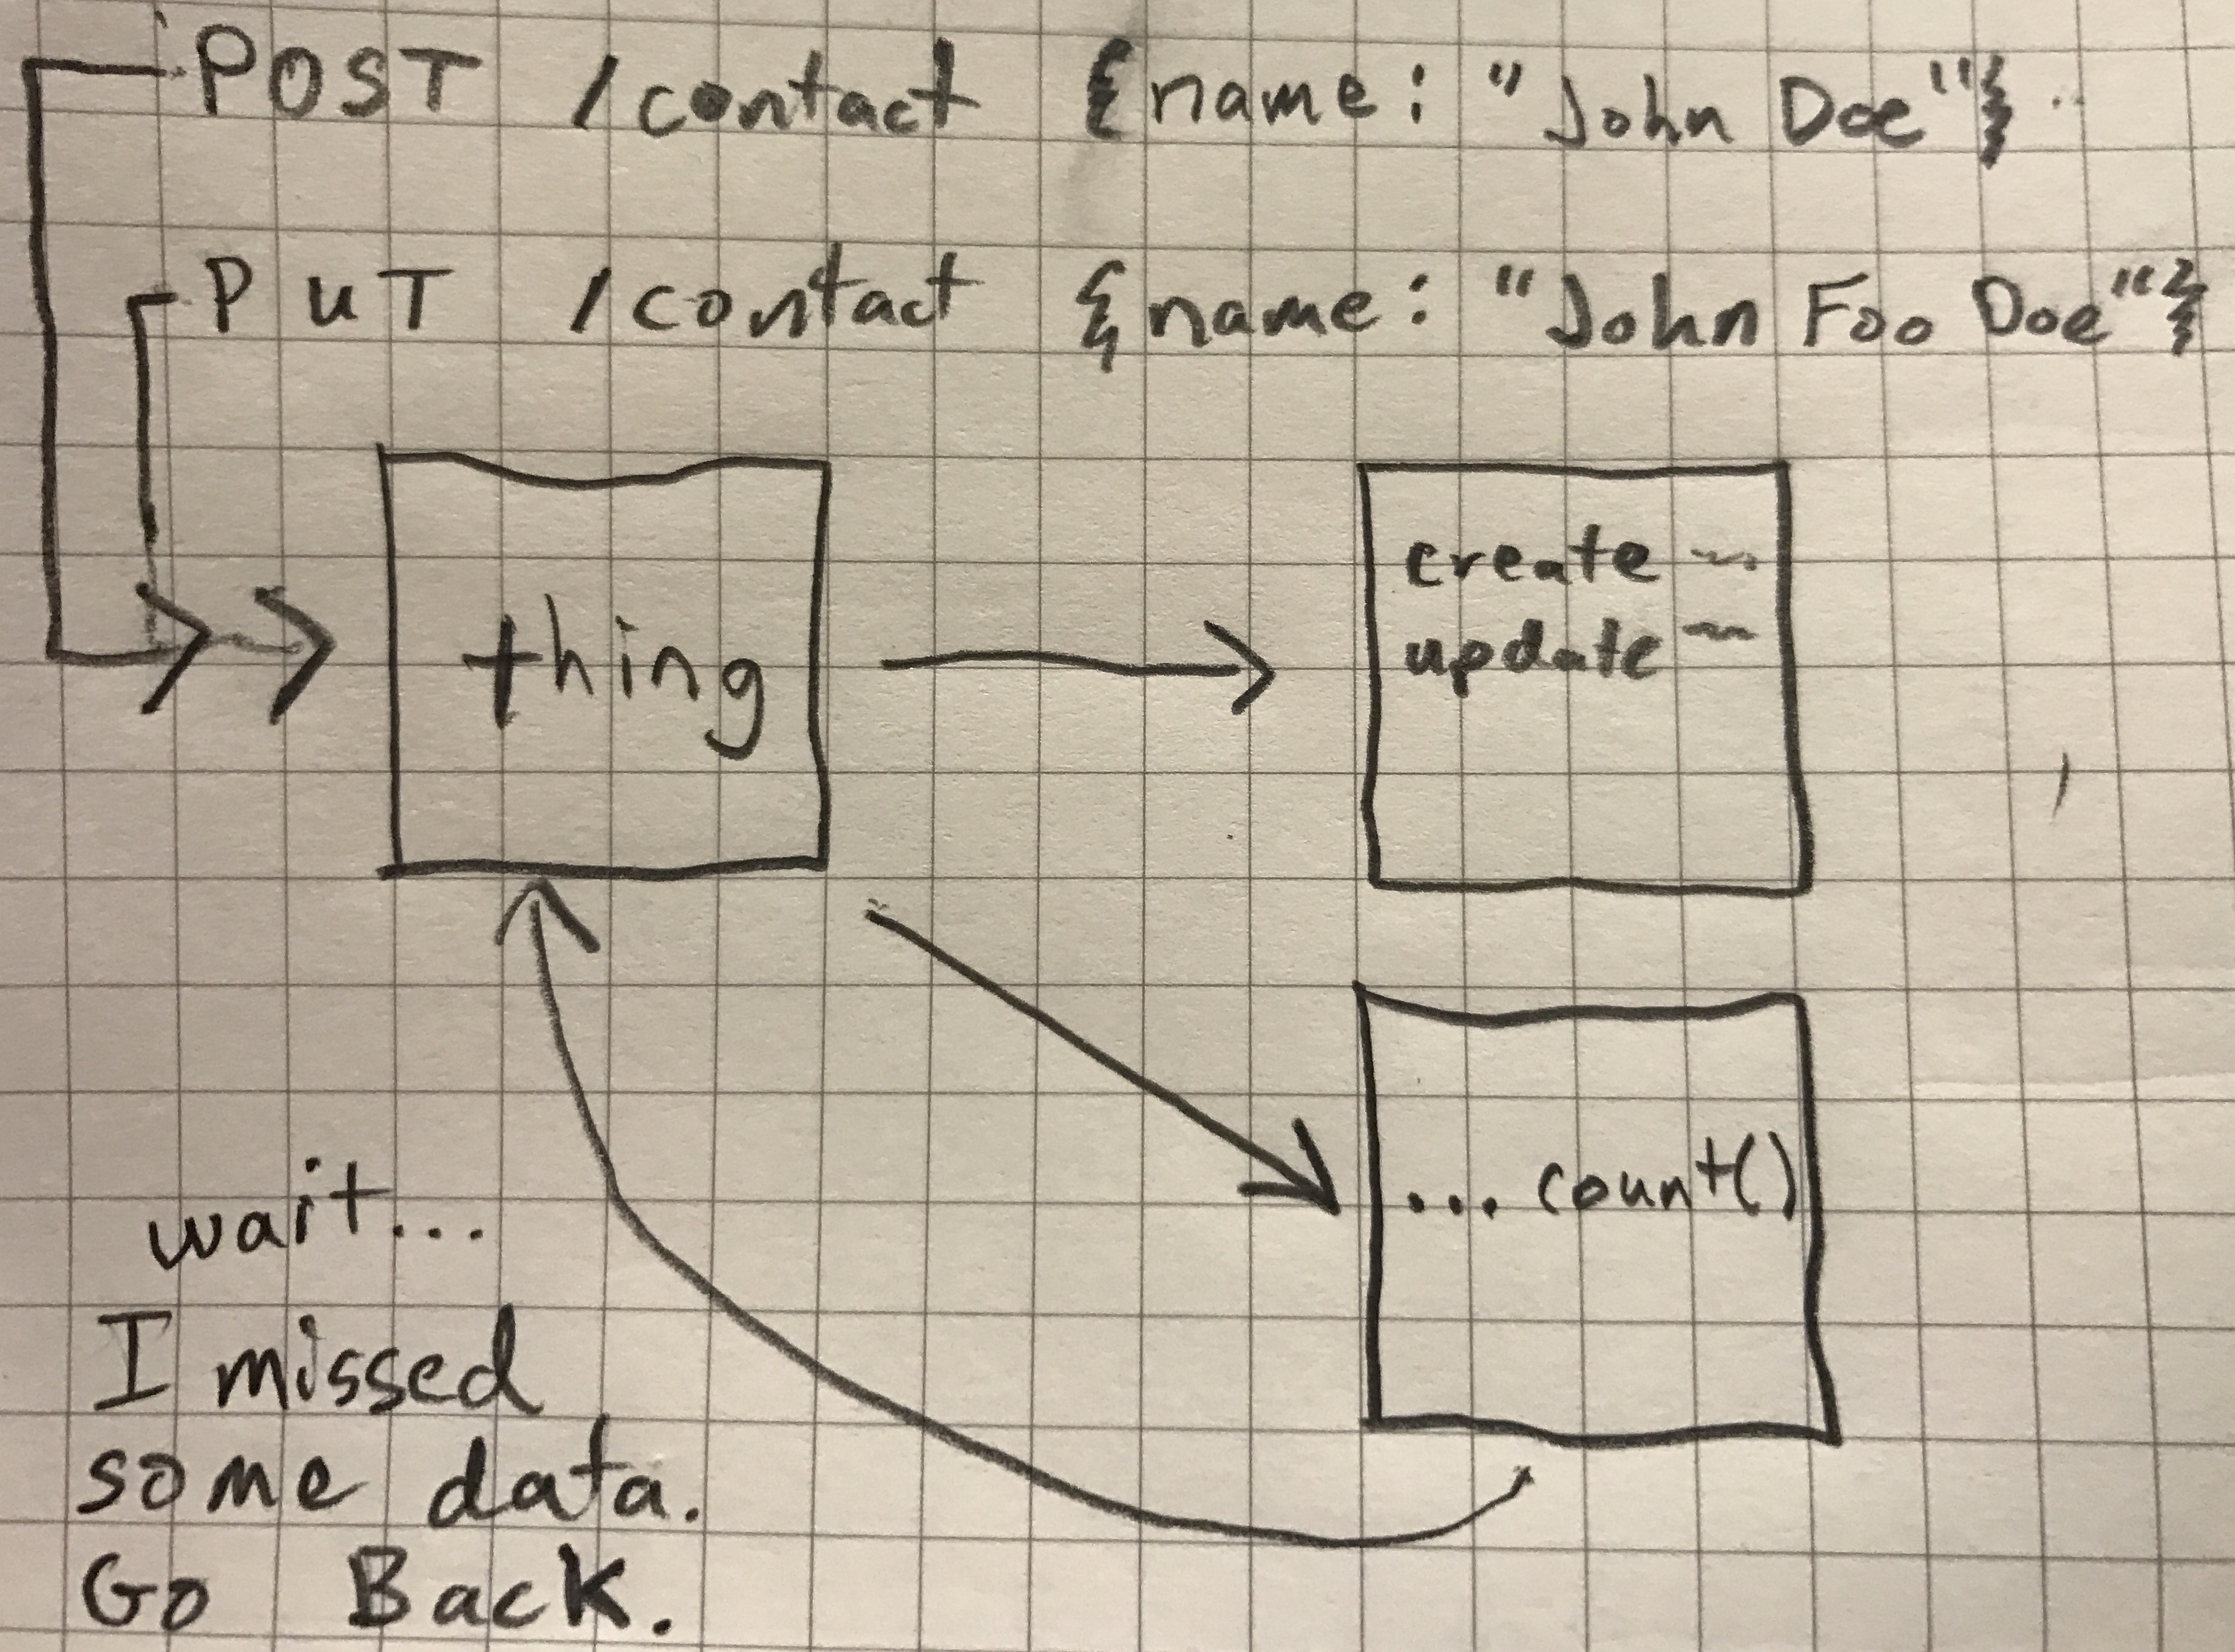 POST /contact {name: "John Doe"}
PUT /contact {name: "John Foo Doe"}
thing
create
update
... count()
wait...
I missed
some data.
Go Back.